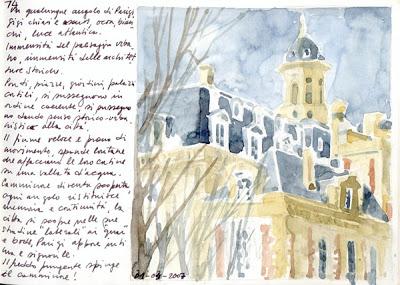 74
In qualunque angolo di Parigi,
grigi chiari e scuri, ocra, bian
chi, luce atlantica.
Immensità del paesaggio urba
no, immensità delle architet
ture storiche.
Ponti, piazze, giardini, palazzi
cortili, si susseguono in
ordine coerente, si susseguo
no dando senso storico-urba
nistico alla città.
Il fiume veloce e pieno di
movimento, sponde lontane
che affacciano le loro cortine
su una valle d'acqua.
Camminare diventa scoperta,
ogni angolo restituisce
memoria e continuità, la
città si scopre nelle sue
stradine laterali ai "quai"
e boul. Parigi appare inti
ma e signorile.
Il freddo pungente spinge
al camminare!
01-04-2007